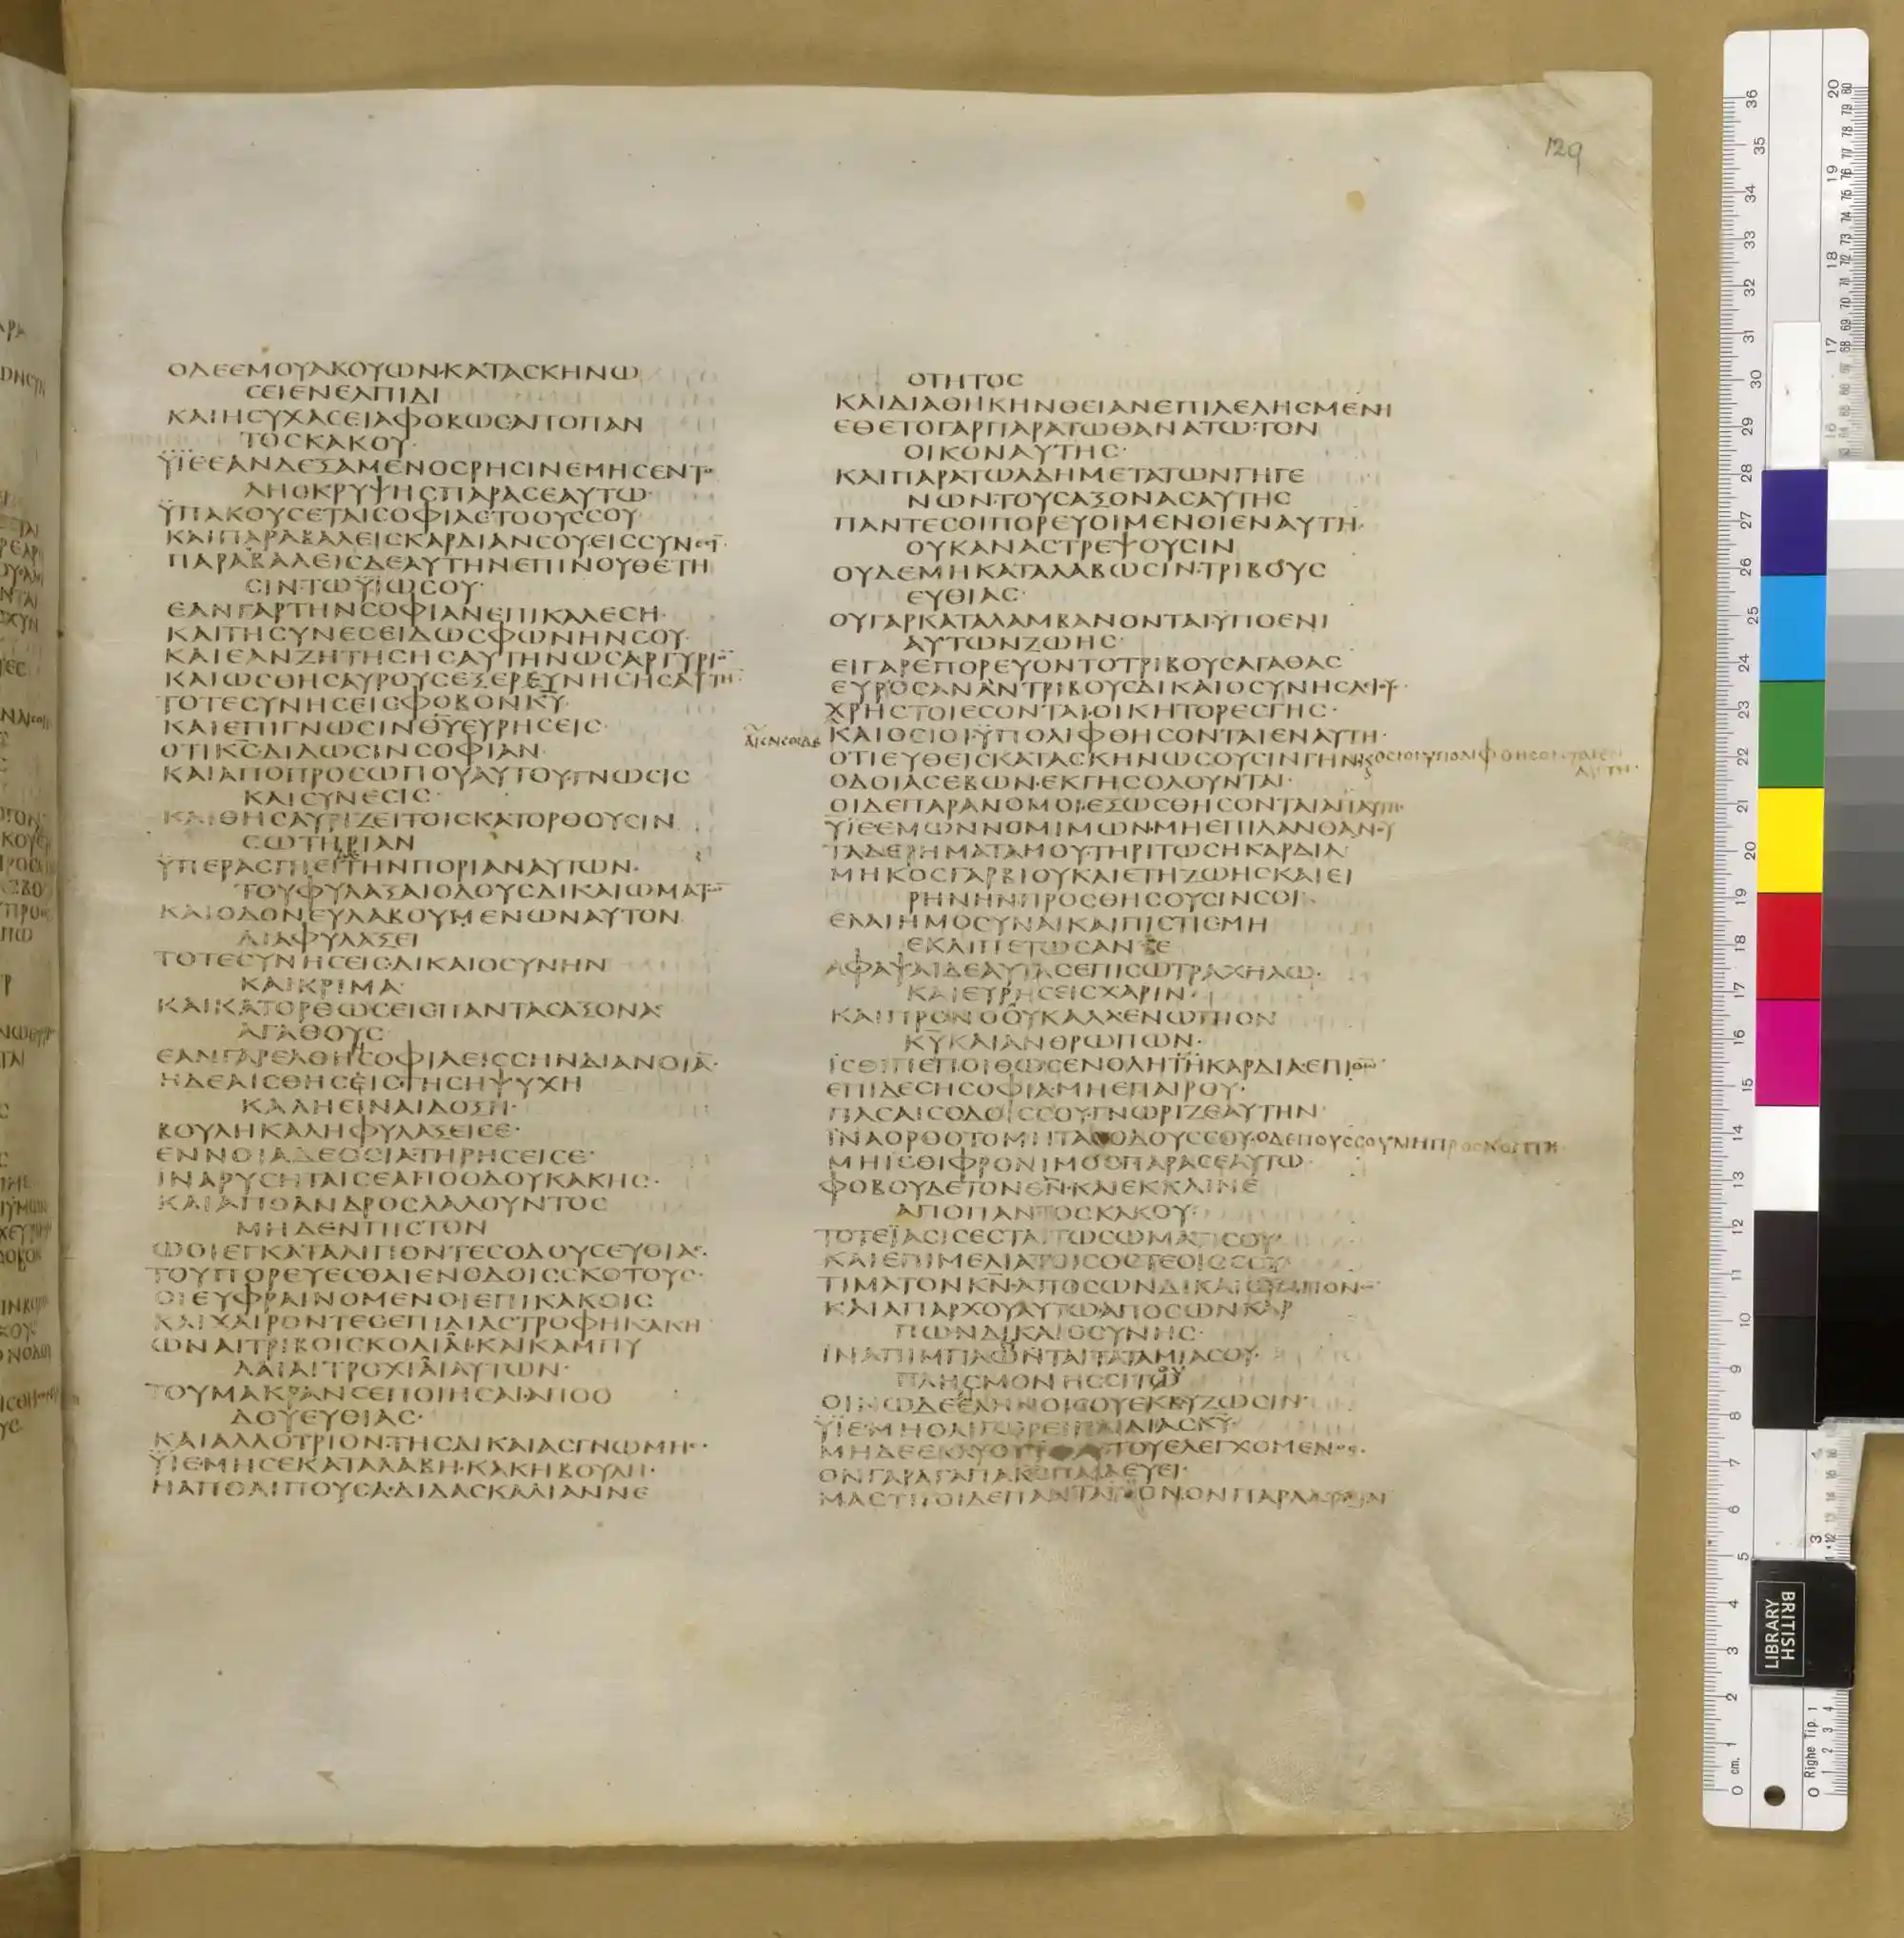 129
ΟΔΕΕΜΟΥΑΚΟΥΩΝ·ΚΑΤΑΣΚΗΝΩ
ΣΕΙΕΝΕΛΠΙΔΙ
ΚΑΙΗΣΥΧΑΣΕΙΑΦΟΒΩΣΑΠΟΠΑΝ
ΤΟΣΚΑΚΟΥ·
ΫΪΕΕΑΝΔΕΞΑΜΕΝΟΣΡΗΣΙΝΕΜΗΣΕΝΤΟ
ΛΗΣΚΡΥΨΗΣΠΑΡΑΣΕΑΥΤΩ·
ΫΠΑΚΟΥΣΕΤΑΙΣΟΦΙΑΣΤΟΟΥΣΣΟΥ·
ΚΑΙΠΑΡΑΒΑΛΕΙΣΚΑΡΔΙΑΝΣΟΥΕΙΣΣΥΝΕΣΙ
ΠΑΡΑΒΑΛΕΙΣΔΕΑΥΤΗΝΕΠΙΝΟΥΘΕΤΗ
ΣΙΝ·ΤΩΫΪΩΣΟΥ·
ΕΑΝΓΑΡΤΗΝΣΟΦΙΑΝΕΠΙΚΑΛΕΣΗ·
ΚΑΙΤΗΣΥΝΕΣΕΙΔΩΣΦΩΝΗΝΣΟΥ·
ΚΑΙΕΑΝΖΗΤΗΣΗΣΑΥΤΗΝΩΣΑΡΓΥΡΙΟ
ΚΑΙΩΣΘΗΣΑΥΡΟΥΣΕΞΕΡΕΥΝΗΣΗΣΑΥΤΗ
ΤΟΤΕΣΥΝΗΣΕΙΣΦΟΒΟΝΚΥ·
ΚΑΙΕΠΙΓΝΩΣΙΝΘΥΕΥΡΗΣΕΙΣ·
ΟΤΙΚΣΔΙΔΩΣΙΝΣΟΦΙΑΝ·
ΚΑΙΑΠΟΠΡΟΣΩΠΟΥΑΥΤΟΥ·ΓΝΩΣΙΣ
ΚΑΙΣΥΝΕΣΙΣ·
ΚΑΙΘΗΣΑΥΡΙΖΕΙΤΟΙΣΚΑΤΟΡΘΟΥΣΙΝ
ΣΩΤΗΡΙΑΝ
ΫΠΕΡΑΣΠΙΕΙΤΗΝΠΟΡΙΑΝΑΥΤΩΝ·
ΤΟΥΦΥΛΑΞΑΙΟΔΟΥΣΔΙΚΑΙΩΜΑΤ
ΚΑΙΟΔΟΝΕΥΛΑΒΟΥΜΕΝΩΝΑΥΤΟΝ
ΔΙΑΦΥΛΑΞΕΙ
ΤΟΤΕΣΥΝΗΣΕΙΣ·ΔΙΚΑΙΟΣΥΝΗΝ
ΚΑΙΚΡΙΜΑ·
ΚΑΙΚΑΤΟΡΘΩΣΕΙΣΠΑΝΤΑΣΑΞΟΝΑΣ
ΑΓΑΘΟΥΣ
ΕΑΝΓΑΡΕΛΘΗΣΟΦΙΑΕΙΣΣΗΝΔΙΑΝΟΙΑ·
ΗΔΕΑΙΣΘΗΣΕΙΣ·ΤΗΣΗΨΥΧΗ
ΚΑΛΗΕΙΝΑΙΔΟΞΗ·
ΒΟΥΛΗΚΑΛΗΦΥΛΑΞΕΙΣΕ·
ΕΝΝΟΙΑΔΕΟΣΙΑΤΗΡΗΣΕΙΣΕ·
ΙΝΑΡΥΣΗΤΑΙΣΕΑΠΟΟΔΟΥΚΑΚΗΣ·
ΚΑΙΑΠΟΑΝΔΡΟΣΛΑΛΟΥΝΤΟΣ
ΜΗΔΕΝΠΙΣΤΟΝ
ΩΟΙΕΓΚΑΤΑΛΙΠΟΝΤΕΣΟΔΟΥΣΕΥΘΙΑΣ·
ΤΟΥΠΟΡΕΥΕΣΘΑΙΕΝΟΔΟΙΣΣΚΟΤΟΥΣ·
ΟΙΕΥΦΡΑΙΝΟΜΕΝΟΙΕΠΙΚΑΚΟΙΣ
ΚΑΙΧΑΙΡΟΝΤΕΣΕΠΙΔΙΑΣΤΡΟΦΗΚΑΚΗ
ΩΝΑΙΤΡΙΒΟΙΣΚΟΛΙΑΙ·ΚΑΙΚΑΜΠΥ
ΛΑΙΑΙΤΡΟΧΙΑΙΑΥΤΩΝ·
ΤΟΥΜΑΚΡΑΝΣΕΠΟΙΗΣΑΙ·ΑΠΟΟ
ΔΟΥΕΥΘΙΑΣ·
ΚΑΙΑΛΛΟΤΡΙΟΝ·ΤΗΣΔΙΚΑΙΑΣΓΝΩΜΗΣ·
ΫΙΕ·ΜΗΣΕΚΑΤΑΛΑΒΗ·ΚΑΚΗΒΟΥΛΗ·
ΗΑΠΟΛΙΠΟΥΣΑ·ΔΙΔΑΣΚΑΛΙΑΝΝΕ
ΟΤΗΤΟΣ
ΚΑΙΔΙΑΘΗΚΗΝΘΕΙΑΝΕΠΙΛΕΛΗΣΜΕΝΗ
ΕΘΕΤΟΓΑΡΠΑΡΑΤΩΘΑΝΑΤΩ·ΤΟΝ
ΟΙΚΟΝΑΥΤΗΣ·
ΚΑΙΠΑΡΑΤΩΑΔΗΜΕΤΑΤΩΝΓΗΓΕ
ΝΩΝ·ΤΟΥΣΑΞΟΝΑΣΑΥΤΗΣ
ΠΑΝΤΕΣΟΙΠΟΡΕΥΟΙΜΕΝΟΙΕΝΑΥΤΗ·
ΟΥΚΑΝΑΣΤΡΕΨΟΥΣΙΝ
ΟΥΔΕΜΗΚΑΤΑΛΑΒΩΣΙΝ·ΤΡΙΒΟΥΣ
ΕΥΘΙΑΣ·
ΟΥΓΑΡΚΑΤΑΛΑΜΒΑΝΟΝΤΑΙΫΠΟΕΝΙ
ΑΥΤΩΝΖΩΗΣ·
ΕΙΓΑΡΕΠΟΡΕΥΟΝΤΟΤΡΙΒΟΥΣΑΓΑΘΑΣ
ΕΥΡΟΣΑΝΑΝΤΡΙΒΟΥΣΔΙΚΑΙΟΣΥΝΗΣΛΙΟΥΣ·
ΧΡΗΣΤΟΙΕΣΟΝΤΑΙ·ΟΙΚΗΤΟΡΕΣΓΗΣ·
ΚΑΙΟΣΙΟΙΫΠΟΛΙΦΘΗΣΟΝΤΑΙΕΝΑΥΤΗ·
ΟΤΙΕΥΘΕΙΣΚΑΤΑΣΚΗΝΩΣΟΥΣΙΝΓΗΝ ΟΣΙΟΙΥΠΟΛΙΦΘΗΣΟΝΤΑΙΕΝ
ΑΥΤΗ·
ΟΔΟΙΑΣΕΒΩΝ·ΕΚΓΗΣΟΛΟΥΝΤΑΙ·
ΟΙΔΕΠΑΡΑΝΟΜΟΙ·ΕΞΩΣΘΗΣΟΝΤΑΙΑΠΑΥΤΗΣ·
ΫΙΕΕΜΩΝΝΟΜΙΜΩΝ·ΜΗΕΠΙΛΑΝΘΑΝΟΥ
ΤΑΔΕΡΗΜΑΤΑΜΟΥ·ΤΗΡΙΤΩΣΗΚΑΡΔΙΑ
ΜΗΚΟΣΓΑΡΒΙΟΥΚΑΙΕΤΗΖΩΗΣΚΑΙΕΙ
ΡΗΝΗΝΠΡΟΣΘΗΣΟΥΣΙΝΣΟΙ·
ΕΛΑΙΗΜΟΣΥΝΑΙΚΑΙΠΙΣΤΙΣΜΗ
ΕΚΛΙΠΕΤΩΣΑΝΣΕ
ΑΦΑΨΑΙΔΕΑΥΤΑΣΕΠΙΣΩΤΡΑΧΗΛΩ·
ΚΑΙΕΥΡΗΣΕΙΣΧΑΡΙΝ·
ΚΑΙΠΡΟΝΟΟΥΚΑΛΑΕΝΩΠΙΟΝ
ΚΥΚΑΙΑΝΘΡΩΠΩΝ·
ΙΣΘΙΠΕΠΟΙΘΩΣΕΝΟΛΗΤΗΚΑΡΔΙΑΕΠΙΘΩ
ΕΠΙΔΕΣΗΣΟΦΙΑ·ΜΗΕΠΑΙΡΟΥ·
ΠΑΣΑΙΣΟΔΟΙΣΣΟΥ·ΓΝΩΡΙΖΕΑΥΤΗΝ
ΙΝΑΟΡΘΟΤΟΜΗΤΑΣΟΔΟΥΣΣΟΥ·ΟΔΕΠΟΥΣΣΟΥΜΗΠΡΟΣΚΟΠΤΗ·
ΜΗΙΣΘΙΦΡΟΝΙΜΟΣΠΑΡΑΣΕΑΥΤΩ·
ΦΟΒΟΥΔΕΤΟΝΘΝ·ΚΑΙΕΚΚΛΙΝΕ
ΑΠΟΠΑΝΤΟΣΚΑΚΟΥ·
ΤΟΤΕΪΑΣΙΣΕΣΤΑΙΤΩΣΩΜΑΤΙΣΟΥ
ΚΑΙΕΠΙΜΕΛΙΑΤΟΙΣΟΣΤΕΟΙΣΣΟΥ
ΤΙΜΑΤΟΝΚΝ·ΑΠΟΣΩΝΔΙΚΑΙΩΝΠΟΝΩ
ΚΑΙΑΠΑΡΧΟΥΑΥΤΩ·ΑΠΟΣΩΝΚΑΡ
ΠΩΝΔΙΚΑΙΟΣΥΝΗΣ·
ΙΝΑΠΙΜΠΛΩΝΤΑΙΤΑΤΑΜΙΑΣΟΥ·
ΠΛΗΣΜΟΝΗΣΣΙΤΩ
ΟΙΝΩΔΕΕΛΗΝΟΙΣΟΥΕΚΒΥΖΩΣΙΝ·
ΫΙΕ·ΜΗΟΛΙΓΩΡΕΙΠΑΙΔΙΑΣΚΥ·
ΜΗΔΕΕΚΛΥΟΥΥΠΑΥΤΟΥΕΛΕΓΧΟΜΕΝΟΣ·
ΟΝΓΑΡΑΓΑΠΑΚΣΠΑΙΔΕΥΕΙ·
ΜΑΣΤΙΓΟΙΔΕΠΑΝΤΑΥΙΟΝ·ΟΝΠΑΡΑΔΕΧΕ